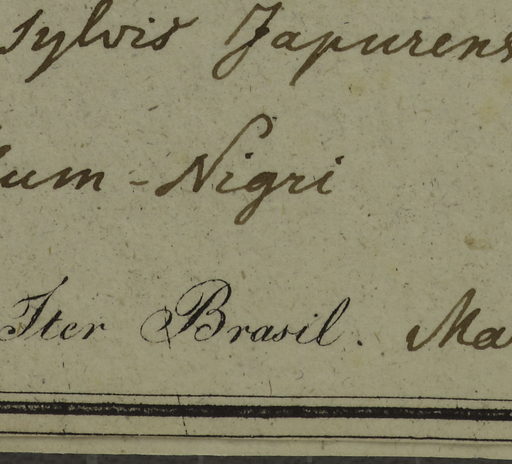 sylvis Japurens
um - Nigri
Iter Brasil. Ma